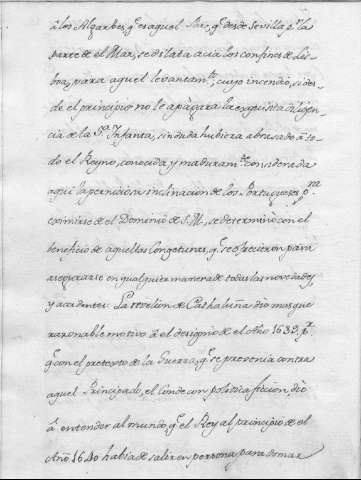 à los Algarbes, q.e es aquel Sur, q.e desde Sevilla p.r la
parte de el Mar, se dilata acia los confines de Lis-
boa, para aquel levantam.to, cuyo incendio, si des-
de el principio no le apagara la exquisita diligen-
cia de la S.ra Infanta, sin duda hubiera abrasado à to-
do el Reyno, conocida, y maduram.te considerada
aqui la perniciosa inclinacion de los Portugueses p.ra
eximirse de el Dominio de S. M., se determinò con el
beneficio de aquellas Congeturas, q.e se ofrecieron para
asegurarse en qualquier manera de todas las novedades,
y accidentes. La revelion de Cathaluña dio mas que
razonable motivo à el designio de el Año 1639. p.r
q.e con el pretexto de la Guerra, q.e se prevenia contra
aquel Principado, el Conde con politica ficcion, diò
à entender al mundo, q.e el Rey al principio de el
Año 1640 habia de salir en persona para domar